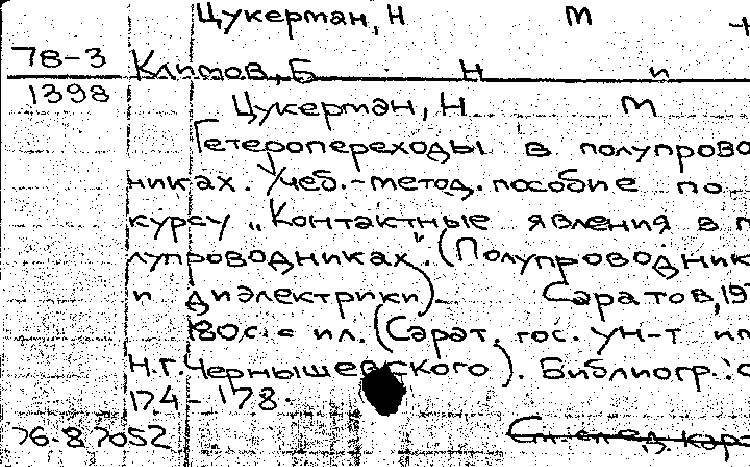 Цукерман, Н м
78-3 Климов, Б Н и
1398 Цукерман, Н м
Гетеропереходы в полупрово
никах. Учеб.-метод. пособие по
курсу „Контактные явления в п
лупроводниках". (Полупроводник
и диэлектрики). Саратов, 19
180с. с ил. (Сарат. гос. ун-т им
Н.Г. Чернышевского). Библиогр.: с
174-178.
76-87052 См след. кар